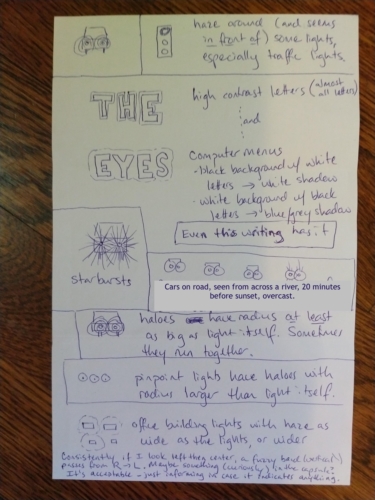 haze around (and seems
in front of) some lights,
especially traffic lights.
THE
high contrast letters (almost
all letters)
and
EYES
Computer menus
• black background w/ white
letters → white shadow
• white background w/ black
letters → blue/grey shadow
Even this writing has it
starbursts
Cars on road, seen from across a river, 20 minutes
before sunset, overcast.
haloes have radius at least
as big as light itself. Sometimes
they run together.
pinpoint lights have haloes with
radius larger than light itself.
office building lights with haze as
wide as the lights, or wider
Consistently if I look left then center, a fuzzy band (vertical)
passes from R → L. Maybe something (viscous) in the capsule?
It's acceptable - just informing in case it indicates anything.